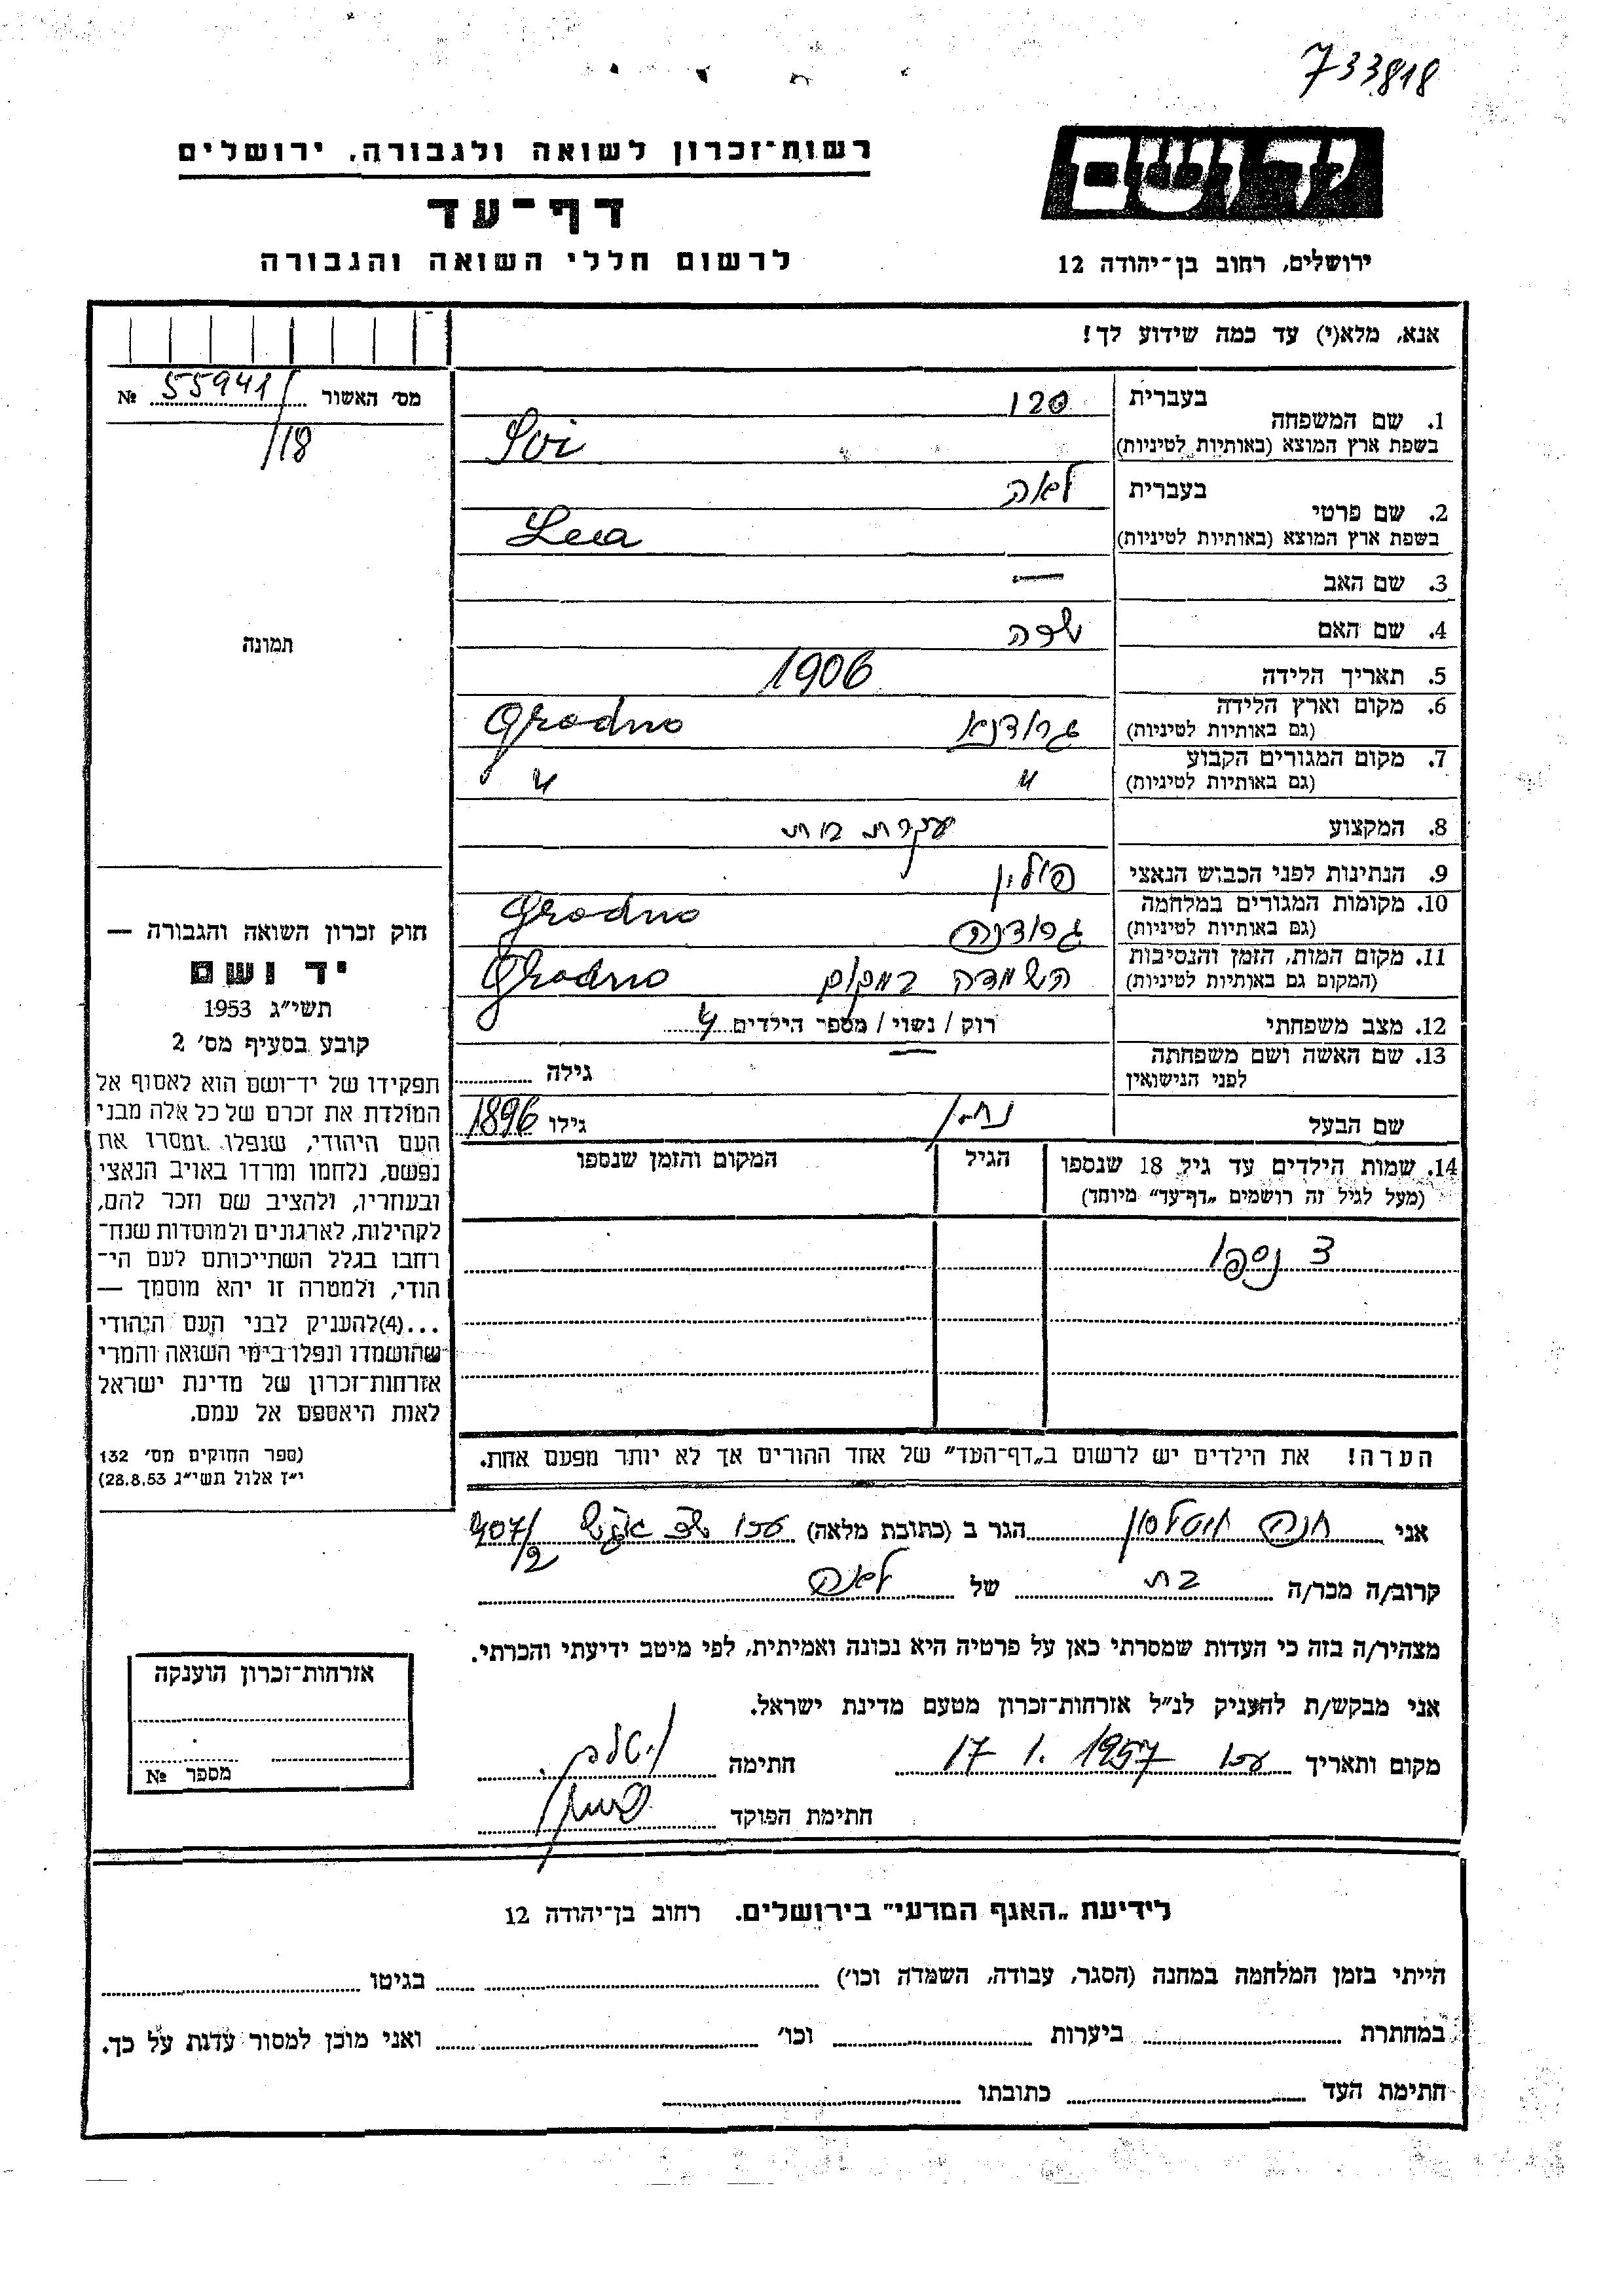 733818
רשות־זכרון לשואה ולגבורה, ירושלים
יד ושם
דף־עד
לרשום חללי השואה והגבורה
ירושלים, רחוב בן־יהודה 12
אנא, מלא(י) עד כמה שידוע לך!
מס' האשור 55941/ №
/18
1. שם המשפחה
בעברית
בשפת ארץ המוצא (באותיות לטיניות)
2. שם פרטי
בעברית לאה
בשפת ארץ המוצא (באותיות לטיניות) Lea
3. שם האב —
4. שם האם
5. תאריך הלידה 1906
6. מקום וארץ הלידה גרודנא Grodno
(גם באותיות לטיניות)
7. מקום המגורים הקבוע " "
(גם באותיות לטיניות)
8. המקצוע עקרת בית
9. הנתינות לפני הכבוש הנאצי פולין
10. מקומות המגורים במלחמה גרודנה Grodno
(גם באותיות לטיניות)
11. מקום המות, הזמן והנסיבות השמדה במקום Grodno
(המקום גם באותיות לטיניות)
12. מצב משפחתי רוק / נשוי / מספר הילדים 4
13. שם האשה ושם משפחתה
לפני הנישואין
גילה
שם הבעל גילו 1896
14. שמות הילדים עד גיל 18 שנספו
(מעל לגיל זה רושמים „דף־עד" מיוחד)
הגיל
המקום והזמן שנספו
3 נספו
הערה! את הילדים יש לרשום ב„דף־העד" של אחד ההורים אך לא יותר מפעם אחת.
תמונה
חוק זכרון השואה והגבורה —
יד ושם
תשי"ג 1953
קובע בסעיף מס' 2
תפקידו של יד־ושם הוא לאסוף אל
המולדת את זכרם של כל אלה מבני
העם היהודי, שנפלו ומסרו את
נפשם, נלחמו ומרדו באויב הנאצי
ובעוזריו, ולהציב שם וזכר להם,
לקהילות, לארגונים ולמוסדות שנח־
רבו בגלל השתייכותם לעם הי־
הודי, ולמטרה זו יהא מוסמך —
...(4)להעניק לבני העם היהודי
שהושמדו ונפלו בימי השואה והמרי
אזרחות־זכרון של מדינת ישראל
לאות היאספם אל עמם.
(ספר החוקים מס' 132
י"ז אלול תשי"ג 28.8.53)
אני חנה הגר ב (כתובת מלאה) עכו 407/
2
קרוב/ה מכר/ה בת של לאה
מצהיר/ה בזה כי העדות שמסרתי כאן על פרטיה היא נכונה ואמיתית, לפי מיטב ידיעתי והכרתי.
אני מבקש/ת להעניק לנ"ל אזרחות־זכרון מטעם מדינת ישראל.
מקום ותאריך עכו 17 1. 1957 חתימה
חתימת הפוקד
אזרחות־זכרון הוענקה
מספר №
לידיעת „האגף המדעי" בירושלים. רחוב בן־יהודה 12
הייתי בזמן המלחמה במחנה (הסגר, עבודה, השמדה וכו') בגיטו
במחתרת ביערות וכו' ואני מוכן למסור עדות על כך.
חתימת העד כתובתו